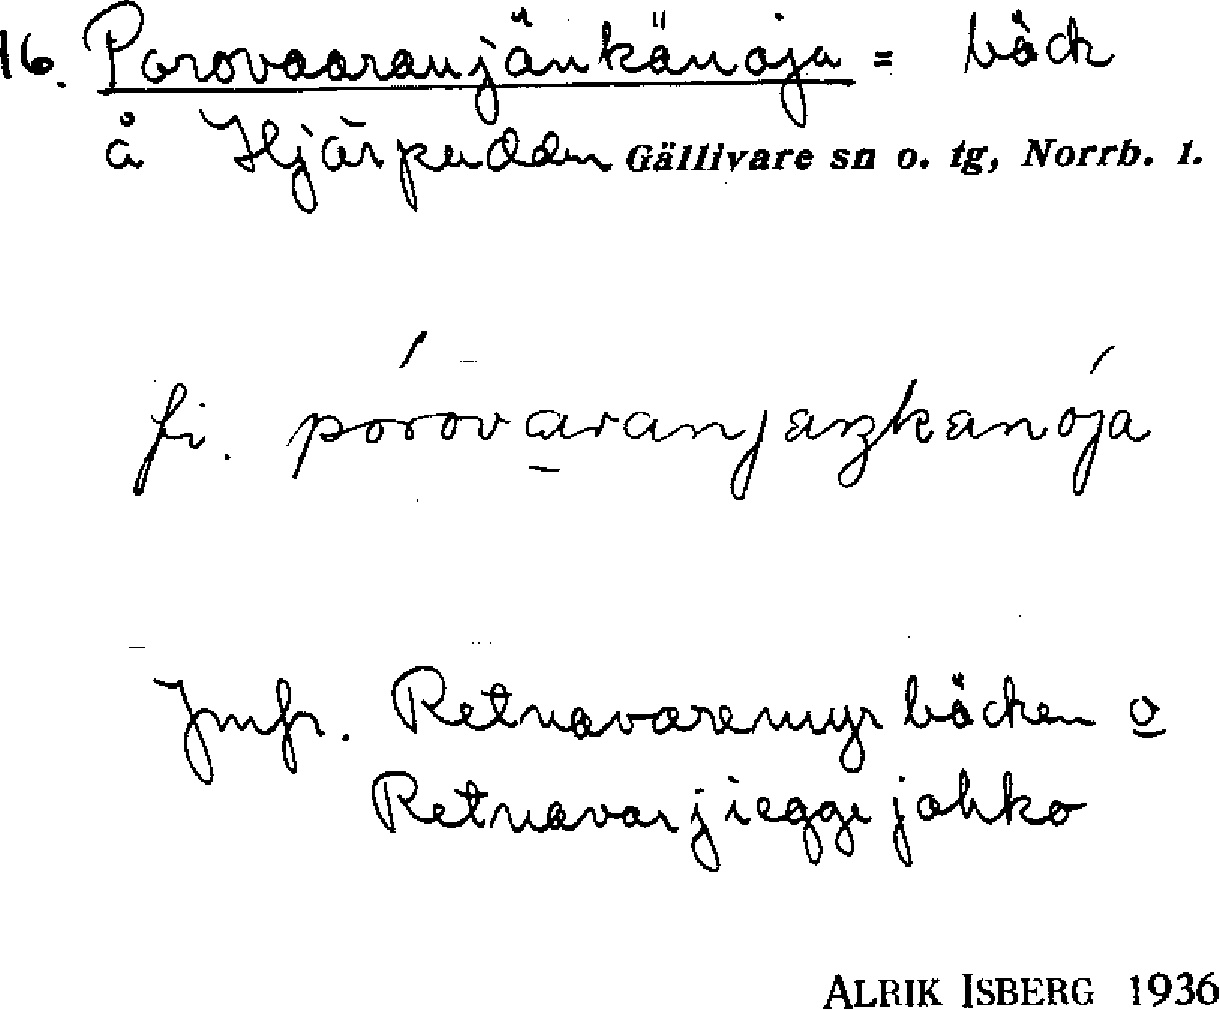 16. Porovaaranjänkänoja = bäck
å Hjärpudden Gällivare sn o. tg, Norrb. l.
fi. pórovaranjäŋkänója
Jmfr. Retnavaremyrbäcken o
Retnavarjieggejohko
ALRIK ISBERG 1936